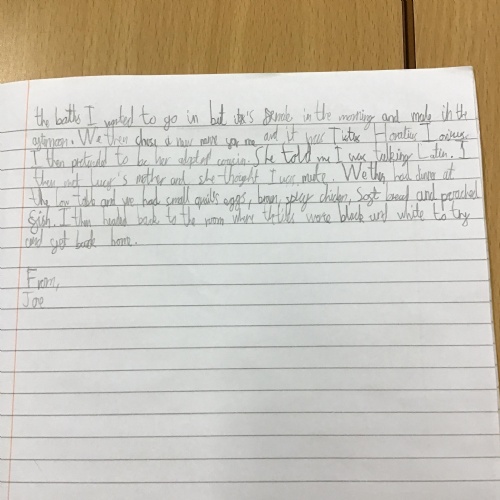 the baths I wanted to go in but its's female in the morning and male in the
afternoon. We then chose a new name for me and it was Titus Horatius
I then pretended to be her adopted cousin. She told me I was talking Latin. I
then met 's mother and she thought I was mute. We then had dinner at
the low table and we had small quills eggs, bean, spicy chicken, Soft bread and poached
fish. I then headed back to the room where the tiles were black and white to try
and get back home.
From,
Joe